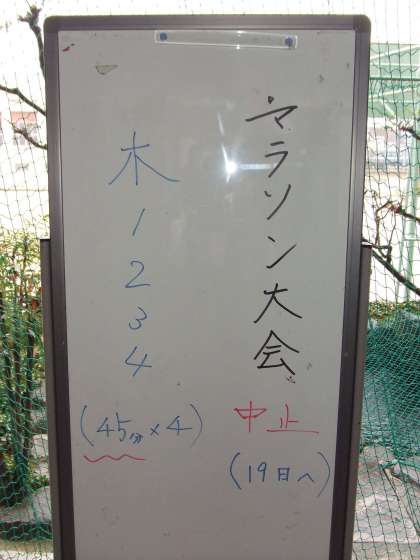 マラソン大会
中止
(19日へ)
木1234
(45分×4)